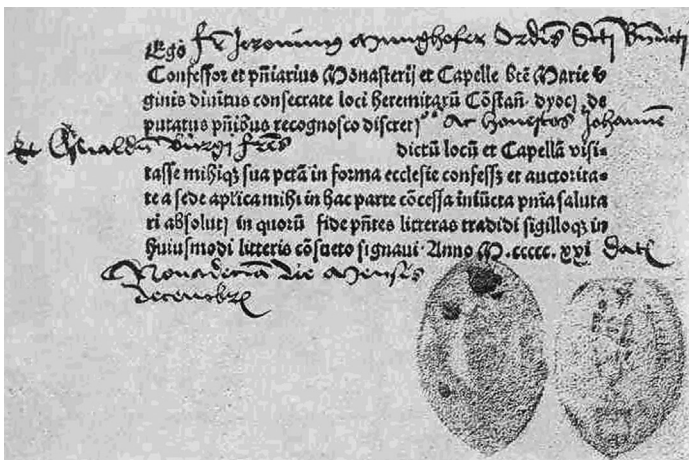 Ego fr̄ Jeronimus Munghofer Ordīs Scti Bn̄dicti
Confessor et pn̄iarius Monasterij et Capelle btē Marie v
ginis diuitus consecrate loci heremitarū Cōstañ. dyoc; de
putatus pn̄ibus recognosco discret; ac honestos Johannē
et Oswaldū Burgi frēs dictū locū et Capellā visi-
tasse mihiqȝ sua pctā in forma ecclesie confessȝ et auctorita-
te a sede aplica mihi in hac parte cōcessa iniūcta pn̄ia saluta
ri absolut; in quorū fide pn̄tes litteras tradidi sigilloqȝ in
huiusmodi litteris cōsueto signaui. Anno M.ccccc.xxi dat
Nonadecīa die Mensis
decembr